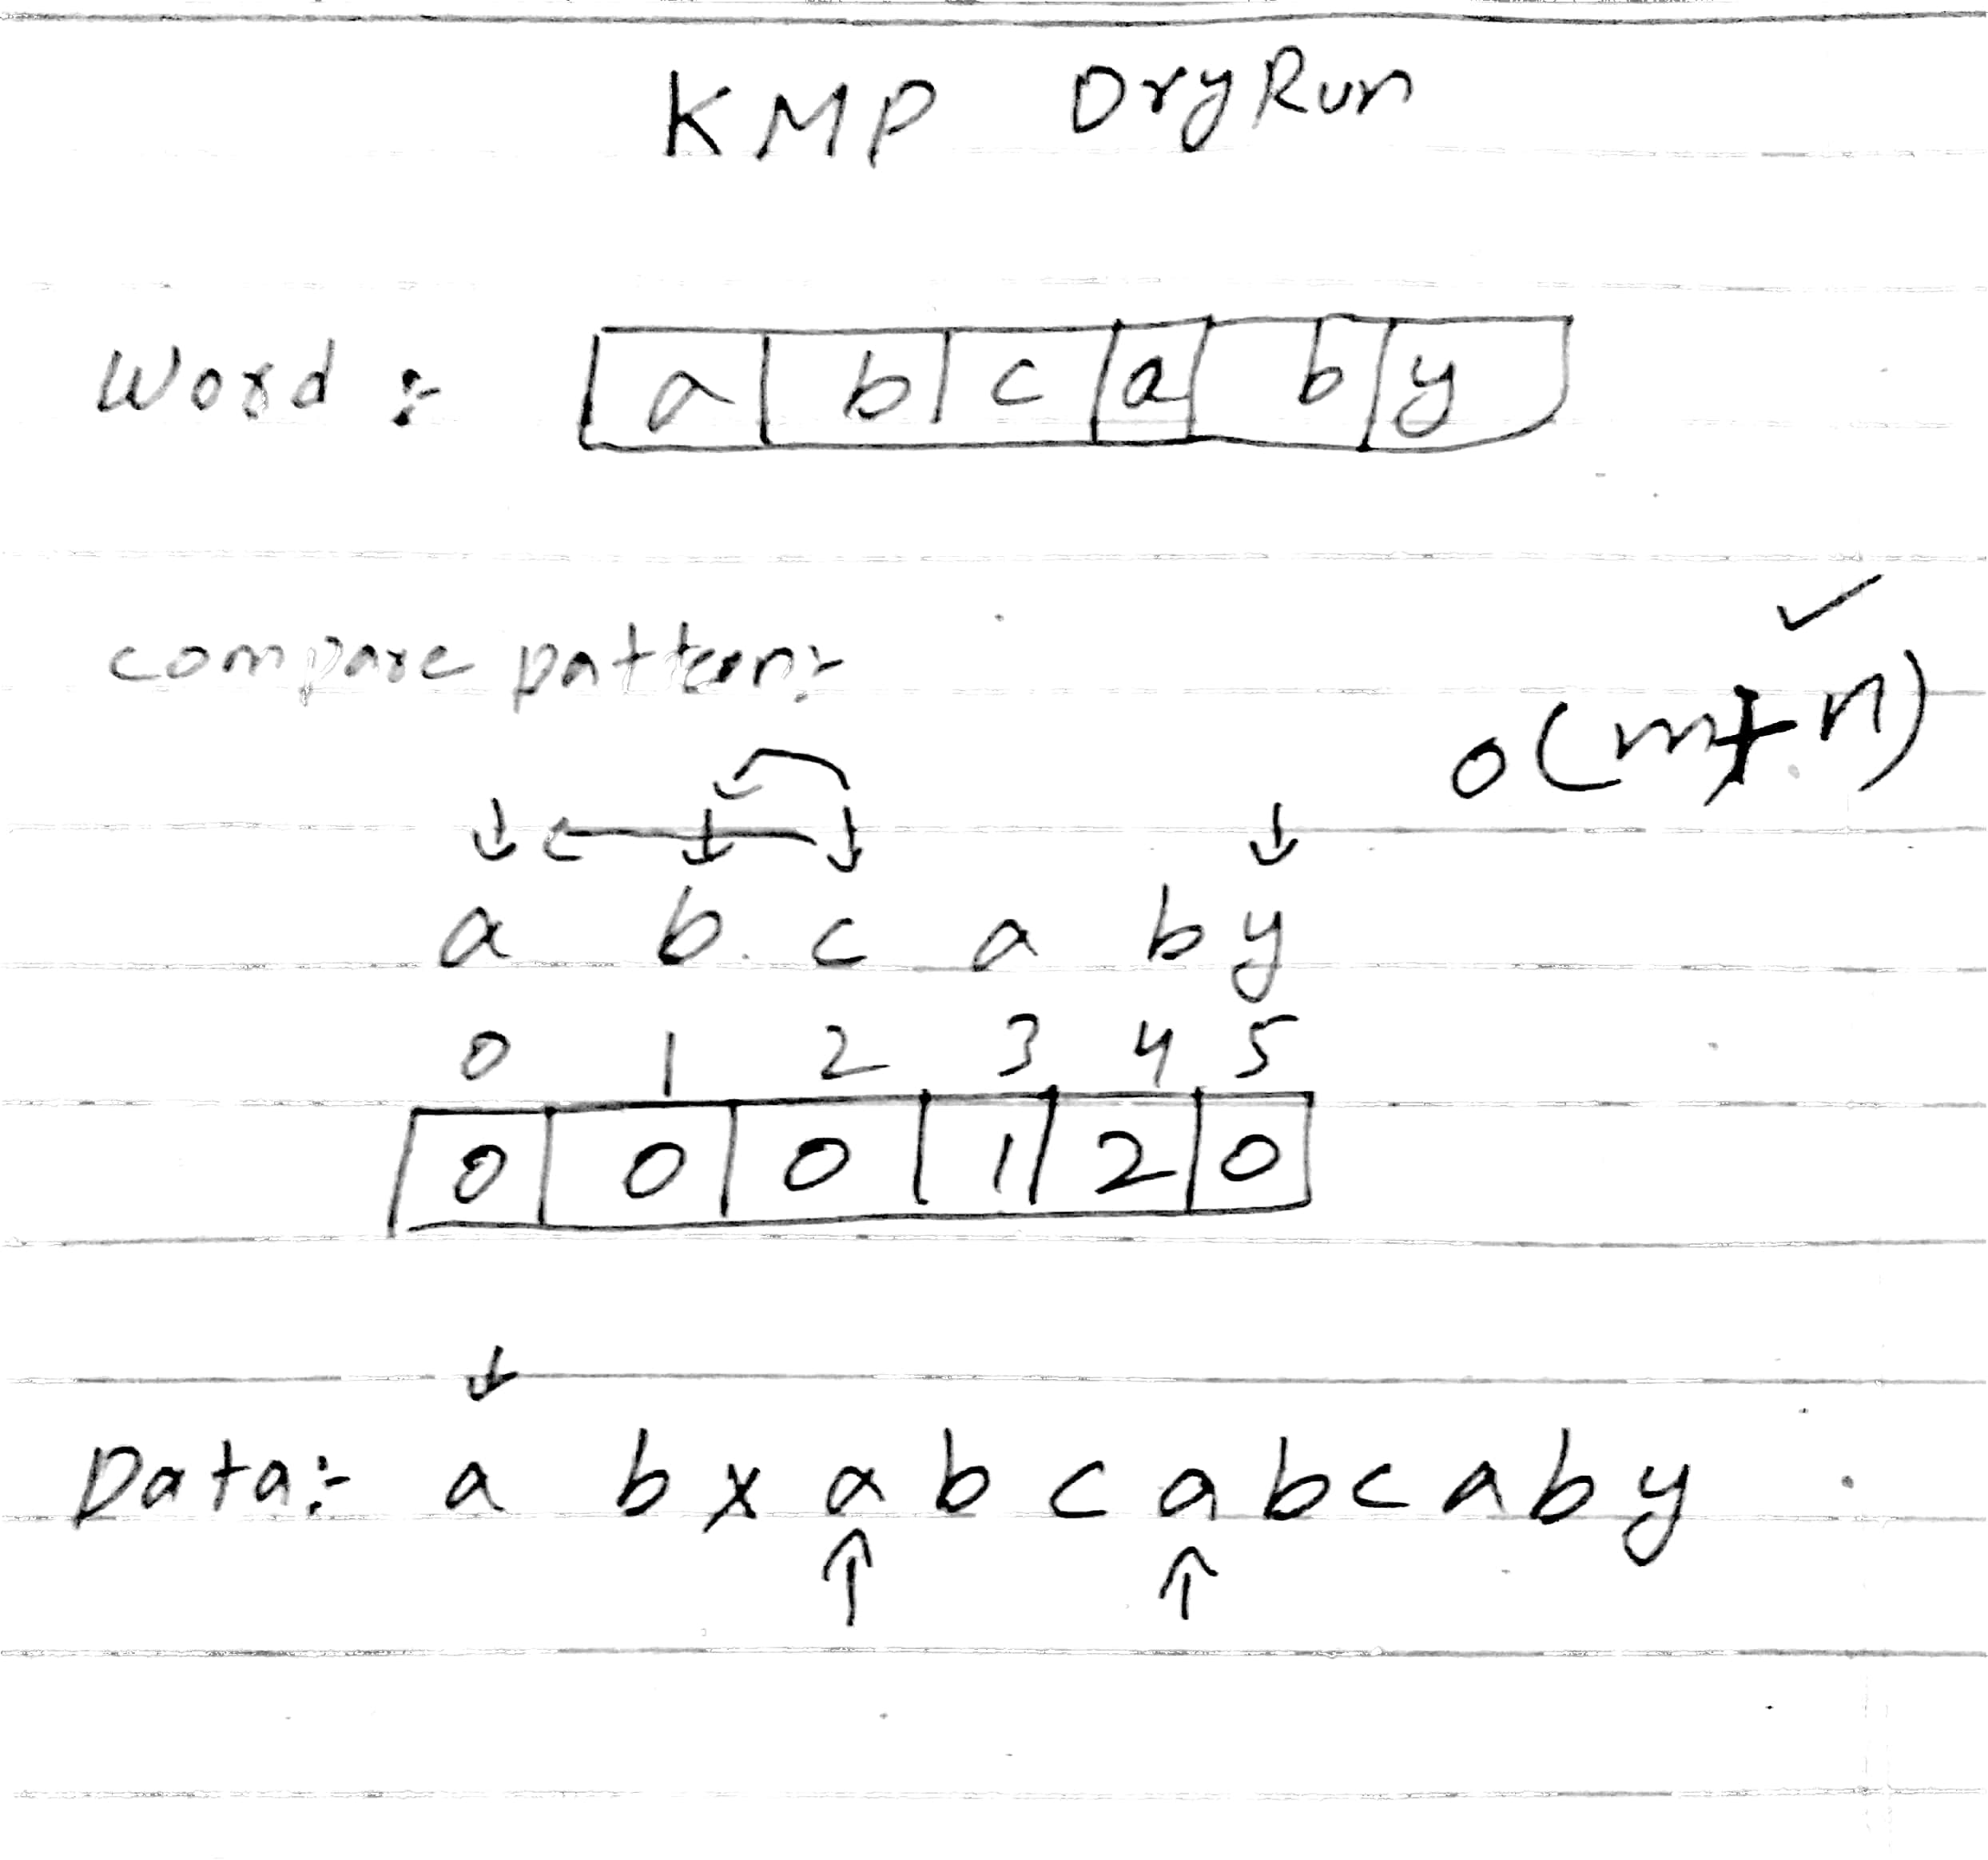 KMP Dry Run
Word :- a b c a b y
compare pattern:-
O(m+n)
a b c a b y
0 1 2 3 4 5
0 0 0 1 2 0
Data:- a b x a b c a b c a b y